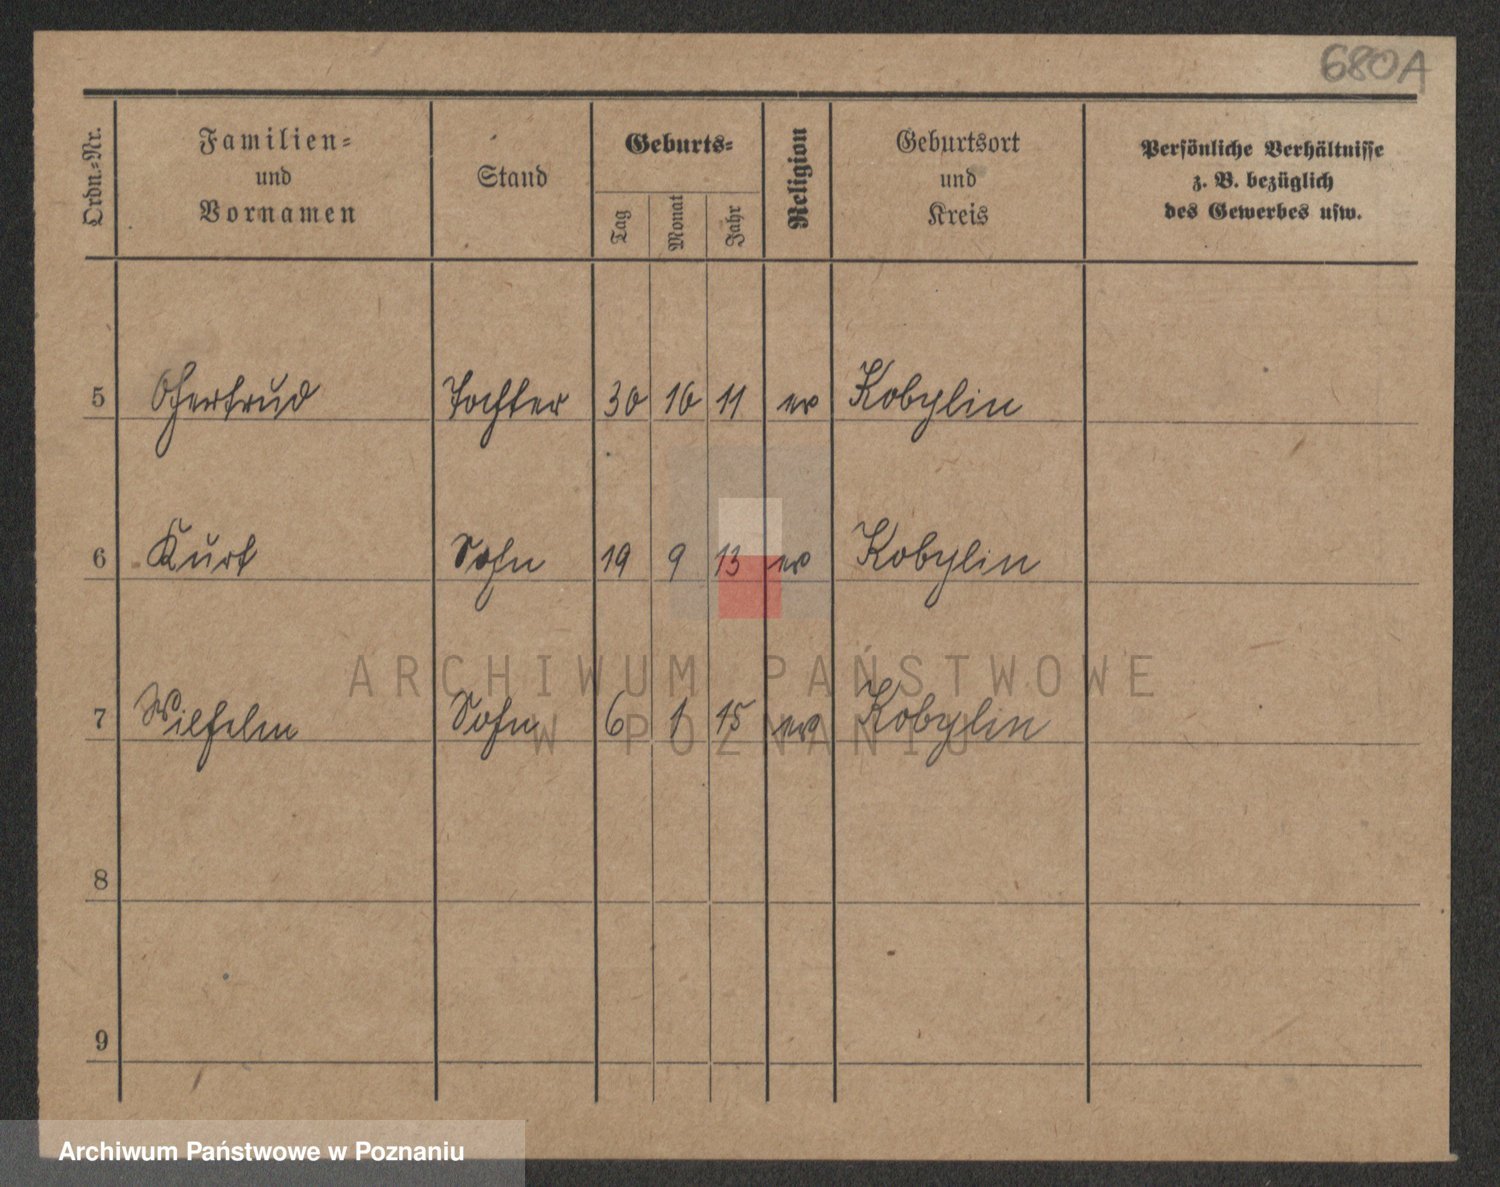 680A
Ordn.-Nr.
Familien-
und
Vornamen
Stand
Geburts-
Tag
Monat
Jahr
Religion
Geburtsort
und
Kreis
Persönliche Verhältnisse
z. B. bezüglich
des Gewerbes usw.
5 Gertrud Tochter 30 10 11 ev Kobylin
6 Kurt Sohn 19 9 13 ev Kobylin
ARCHIWUM PAŃSTWOWE
7 Wilhelm Sohn 6 1 15 ev Kobylin
W POZNANIU
8
9
Archiwum Państwowe w Poznaniu